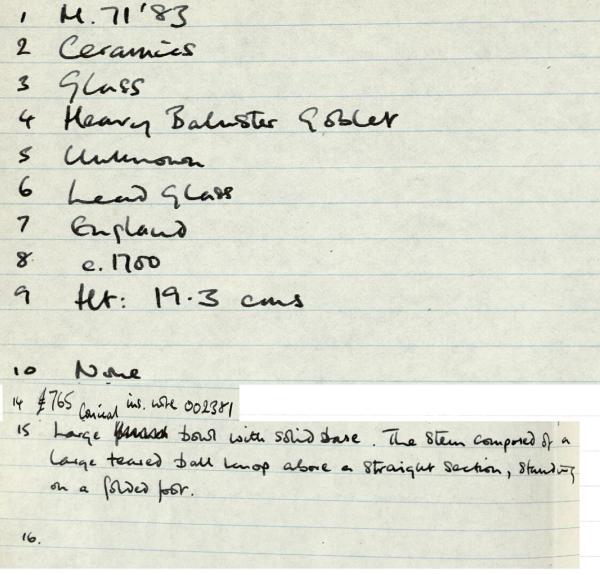 1 M.71'83
2 Ceramics
3 Glass
4 Heavy Baluster Goblet
5 Unknown
6 Lead Glass
7 England
8 c.1700
9 Ht: 19.3 cms
10 None
14 £765 ins. note 002381
15 Large conical bowl with solid base. The stem composed of a
large teared ball knop above a straight section, standing
on a folded foot.
16.